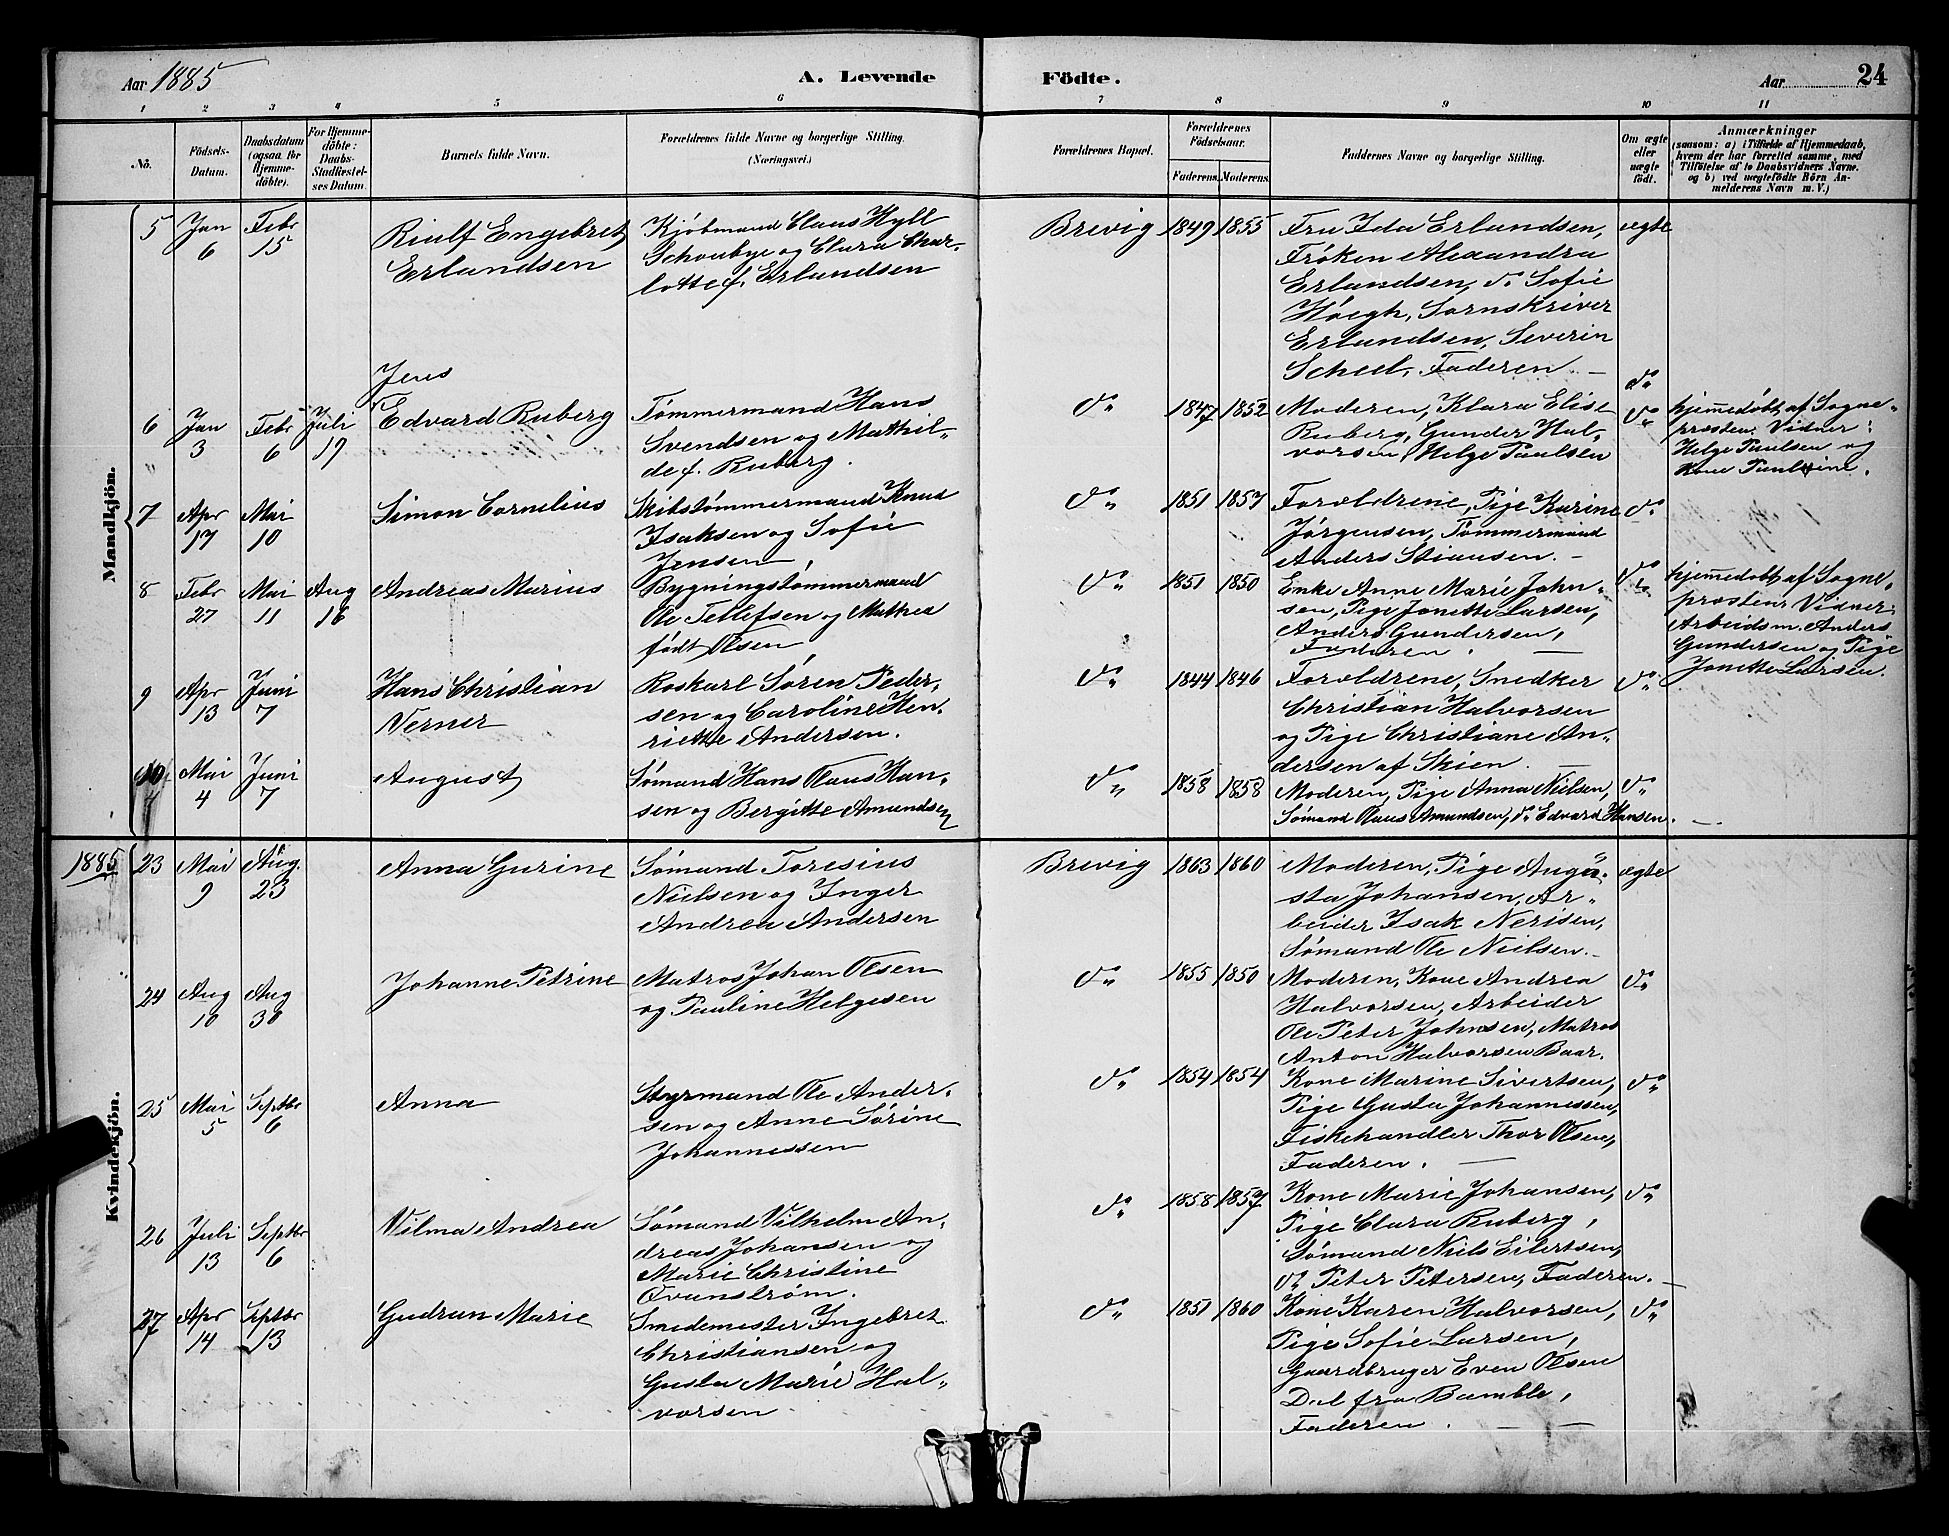 Aar 1885
A. Levende
Födte.
Aar
24
1 2 3 4 5 6 7 8 9 10 11
No.
Födsels-
Datum.
Daabsdatum
(ogsaa for
Hjemme-
döbte).
For Hjemme-
döbte:
Daabs-
Stadfæstel-
ses Datum.
Barnets fulde Navn.
Forældrenes fulde Navne og borgerlige Stilling.
(Næringsvei.)
Forældrenes Bopæl.
Forældrenes
Födselsaar.
Faderens. Moderens.
Faddernes Navne og borgerlige Stilling.
Om ægte
eller
uægte
födt.
Anmærkninger
(saasom: a) i Tilfælde af Hjemmedaab,
hvem der har forrettet samme, med
Tilföielse af to Daabsvidners Navne.
og b) ved uægtefödte Börn An-
melderens Navn m. V.)
Mandkjön.
5
Jan
6
Febr
15
Riulf Engebret
Erlandsen
Kjöbmand Claus Hyll
Schoubye og Clara Char-
lotte f. Erlandsen
Brevig
1849
1855
Fru Ida Erlandsen,
Fröken Alexandra
Erlandsen, do Sofie
Höegh, Sornskriver
Erlandsen, Severin
Scheel, Faderen. —
ægte
6
Jan
3
Febr
6
Juli
19
Jens
Edvard Ruberg
Tömmermand Hans
Svendsen og Mathil-
de f. Ruberg.
do
1847
1852
Moderen, Klara Elise
Ruberg, Gunder Hal-
vorsen, Helge Paulsen
do
do
hjemmedöbt af Sogne-
præsten. Vidner:
Helge Paulsen og
Kone Pauline.
7
Apr
17
Mai
10
Simon Cornelius
Skibstömmermand Knud
Isaksen og Sofie
Jensen,
do
1851
1857
Forældrene, Pige Karine
Jörgensen, Tömmermand
Anders Stiansen. —
do
8
Febr
27
Mai
11
Aug
16
Andreas Marius
Bygningstömmermand
Ole Tellefsen og Mathea
födt Olsen,
do
1851
1850
Enke Anne Marie John-
sen, Pige Jonette Larsen,
Anders Gundersen,
Faderen. —
do
hjemmedöbt af Sogne-
præsten. Vidner:
Arbeidsm. Anders
Gundersen og Pige
Jonette Larsen.
9
Apr
13
Juni
7
Hans Christian
Verner
Roskarl Sören Peder-
sen og Caroline Hen-
riette Andersen.
do
1844
1846
Forældrene, Snedker
Christian Halvorsen
og Pige Christiane An-
dersen af Skien. —
do
10
Mai
4
Juni
7
August
Sömand Hans Olaus Han-
sen og Bergitte Amundsen
do
1858
1858
Moderen, Pige Anna Nielsen,
Sömand Olaus Amundsen, do Edvard Hansen. —
do
1885
Kvindekjön.
23
Mai
9
Aug.
23
Anna Gurine
Sömand Toresius
Nielsen og Inger
Andrea Andersen
Brevig
1863
1860
Moderen, Pige Augu-
sta Johansen, Ar-
beider Isak Nerisen,
Sömand Ole Nielsen. —
ægte
24
Aug
10
Aug
30
Johanne Petrine
Matros Johan Olsen
og Pauline Helgesen
do
1855
1850
Moderen, Kone Andrea
Halvorsen, Arbeider
Ole Peter Johnsen, Matros
Anton Halvorsen Baar.
do
25
Mai
5
Septbr
6
Anna
Styrmand Ole Ander-
sen og Anne Sörine
Johannessen
do
1854
1854
Kone Marine Sivertsen,
Pige Gusta Johannessen,
Fiskehandler Thor Olsen,
Faderen. —
do
26
Juli
13
Septbr
6
Vilma Andrea
Sömand Vilhelm An-
dreas Johansen og
Marie Christine
Qvanström.
do
1858
1857
Kone Marie Johansen,
Pige Clara Ruberg,
Sömand Niels Eilertsen,
do Peter Petersen, Faderen. —
do
27
Apr
14
Septbr
13
Gudrun Marie
Smedemester Ingebret
Christiansen og
Gusta Marie Hal-
vorsen
do
1851
1860
Kone Karen Halvorsen,
Pige Sofie Larsen,
Gaardbruger Even Olsen
Dal fra Bamble,
Faderen. — —
do